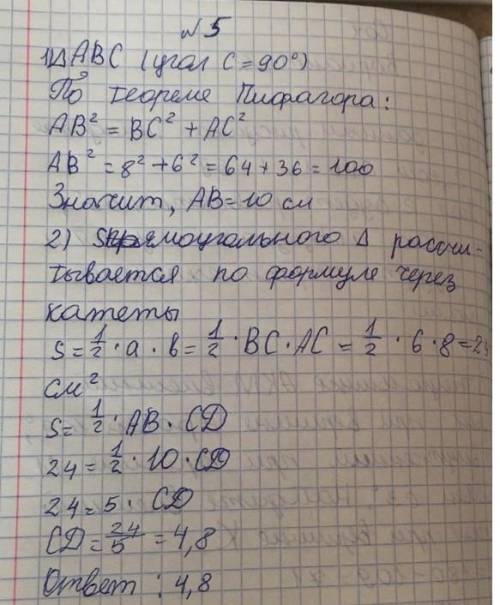 №5
1) Δ ABC (угол C = 90°)
По теореме Пифагора:
AB² = BC² + AC²
AB² = 8² + 6² = 64 + 36 = 100
Значит, AB = 10 см
2) S прямоугольного Δ рассчи-
тывается по формуле через
катеты
S = 1/2 · a · b = 1/2 · BC · AC = 1/2 · 6 · 8 = 24
см²
S = 1/2 · AB · CD
24 = 1/2 · 10 · CD
24 = 5 · CD
CD = 24/5 = 4,8
Ответ: 4,8